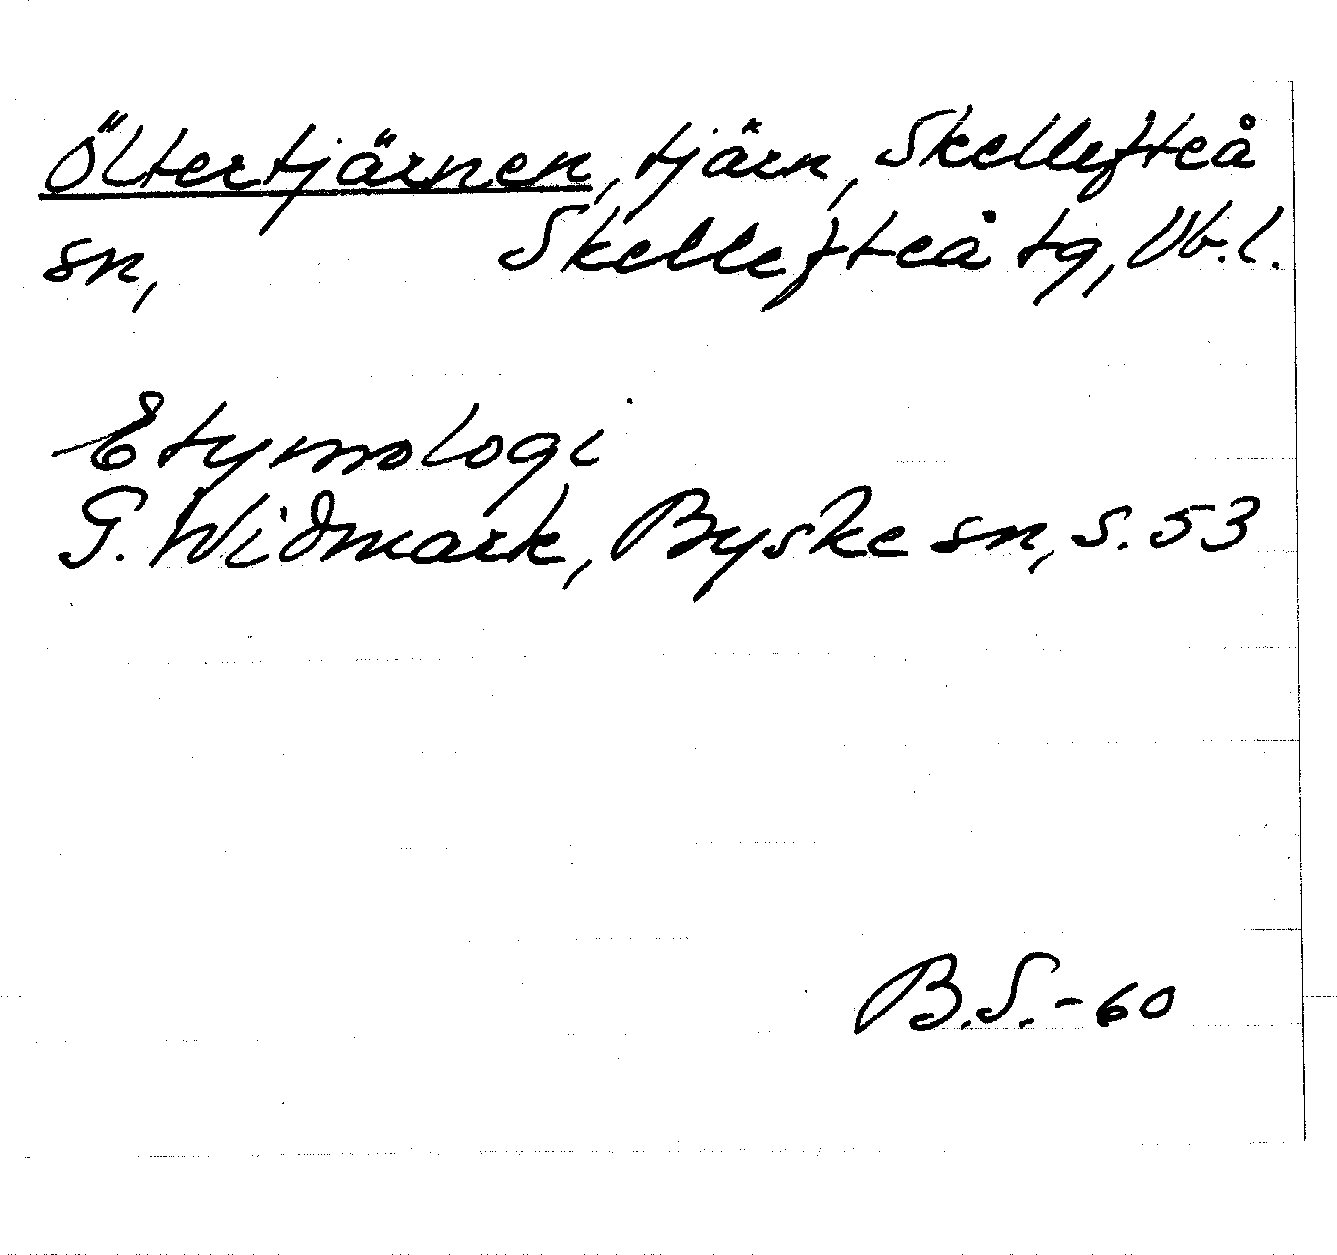 Öltertjärnen, tjärn, Skellefteå
sn, Skellefteå tg, Vb.l.
Etymologi
G. Widmark, Byske sn, s. 53
B.S.-60